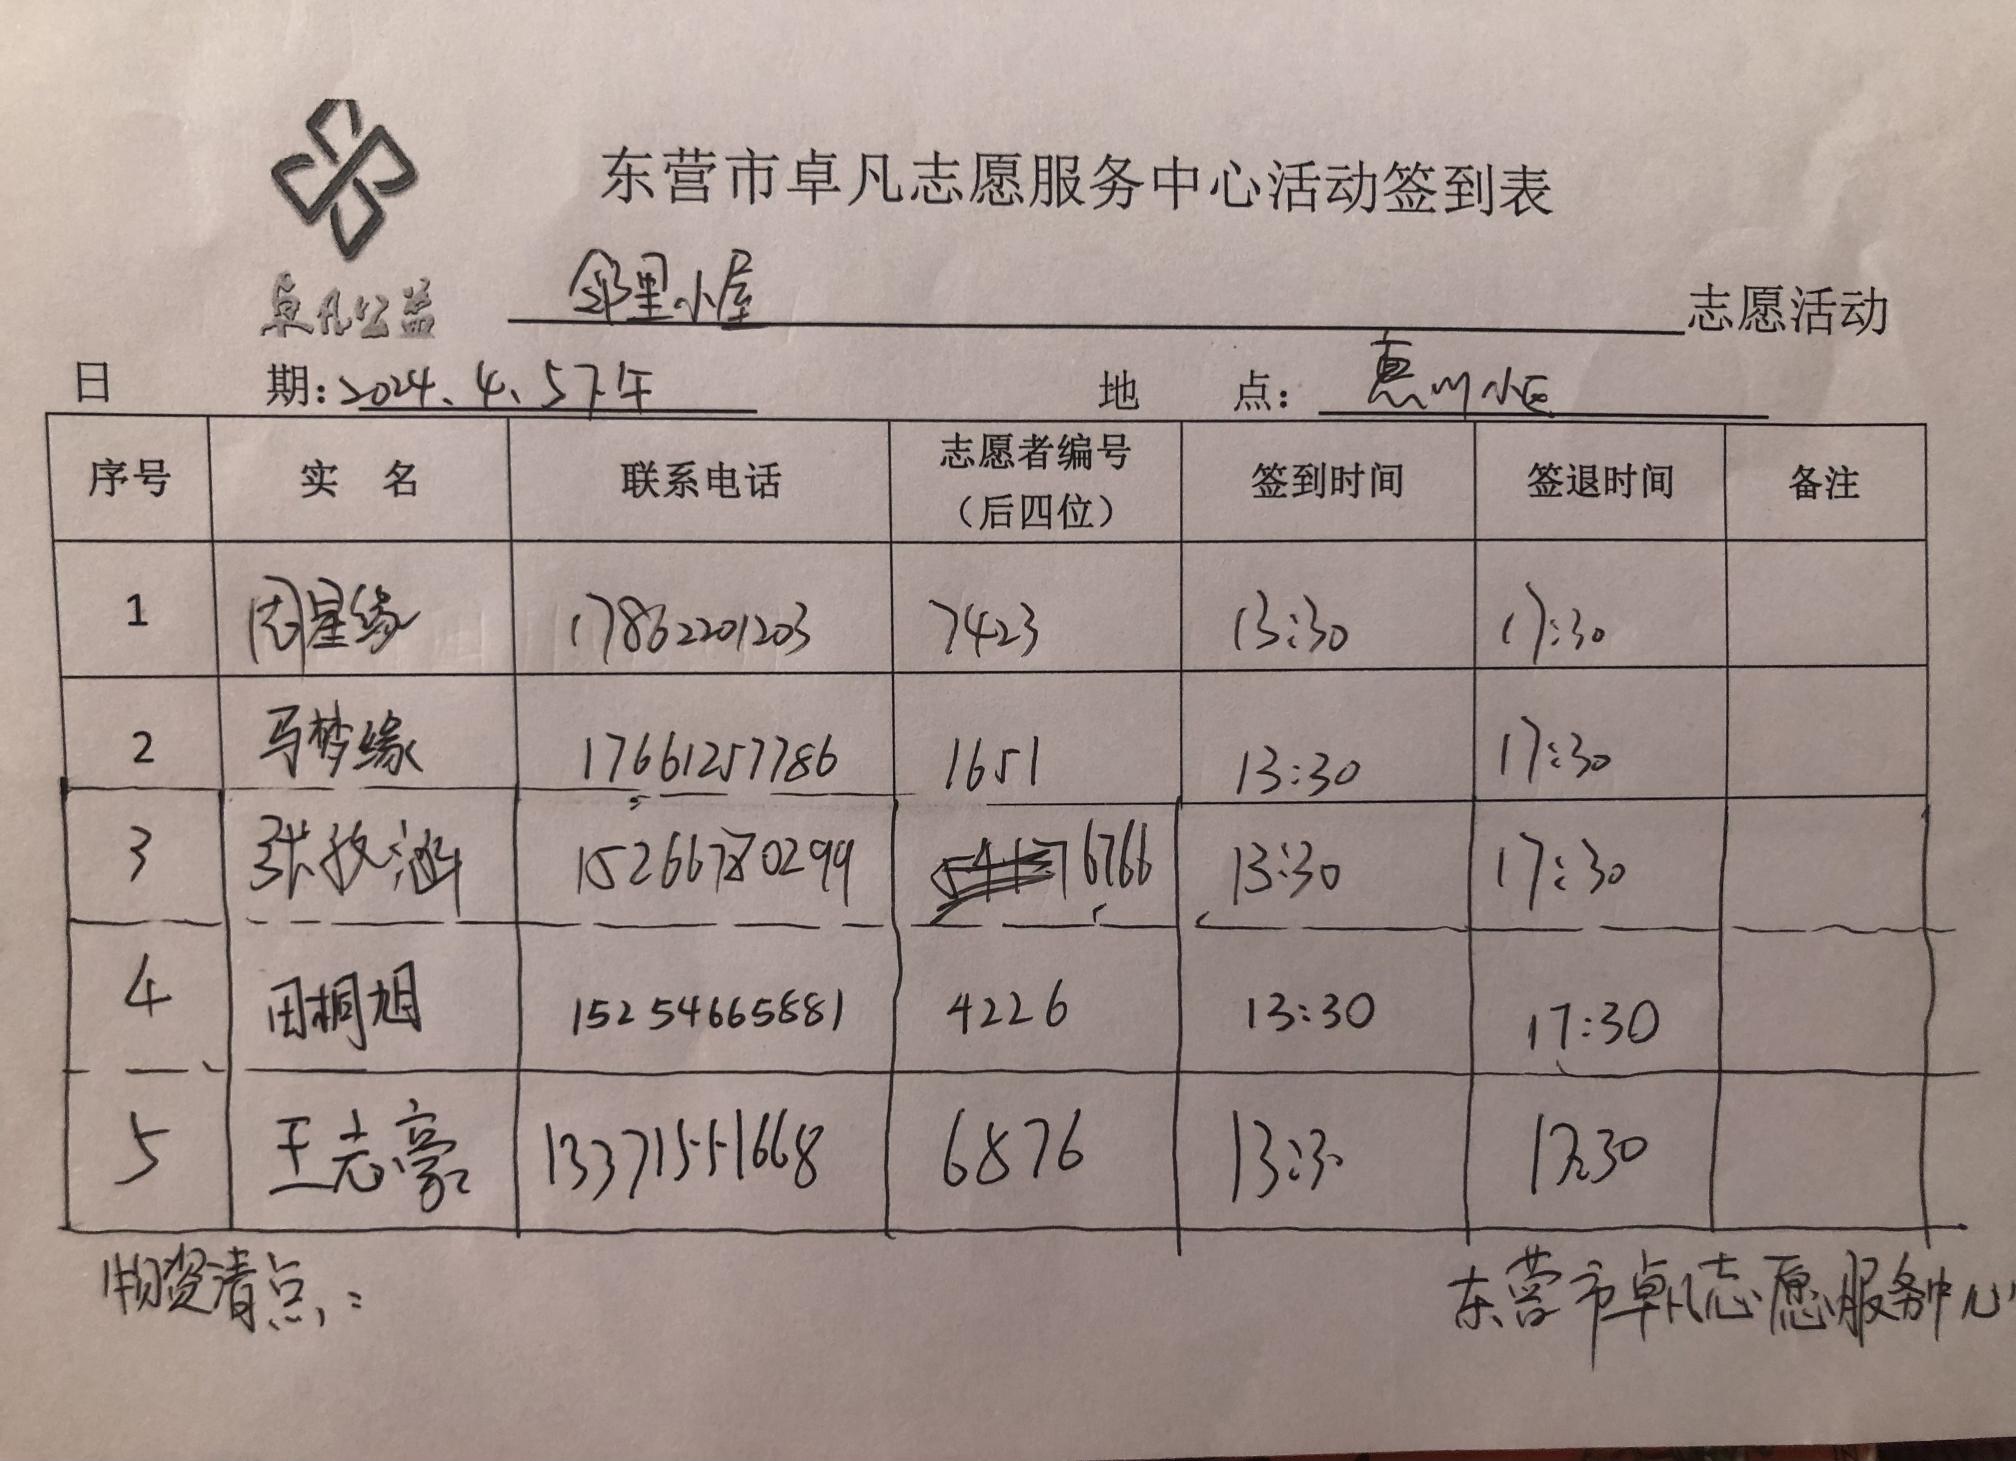 东营市卓凡志愿服务中心活动签到表
卓凡公益 邻里小屋 志愿活动
日 期：2024.4.5下午 地 点： 惠州小区
序号 实 名 联系电话 志愿者编号（后四位） 签到时间 签退时间 备注
1 周星缘 17862201203 7423 13:30 17:30
2 马梦缘 17661257786 1651 13:30 17:30
3 张牧涵 0299 6766 13:30 17:30
4 田桐旭 15254665881 4226 13:30 17:30
5 王志豪 13371551668 6876 13:30 17:30
物资清点：
东营市卓凡志愿服务中心